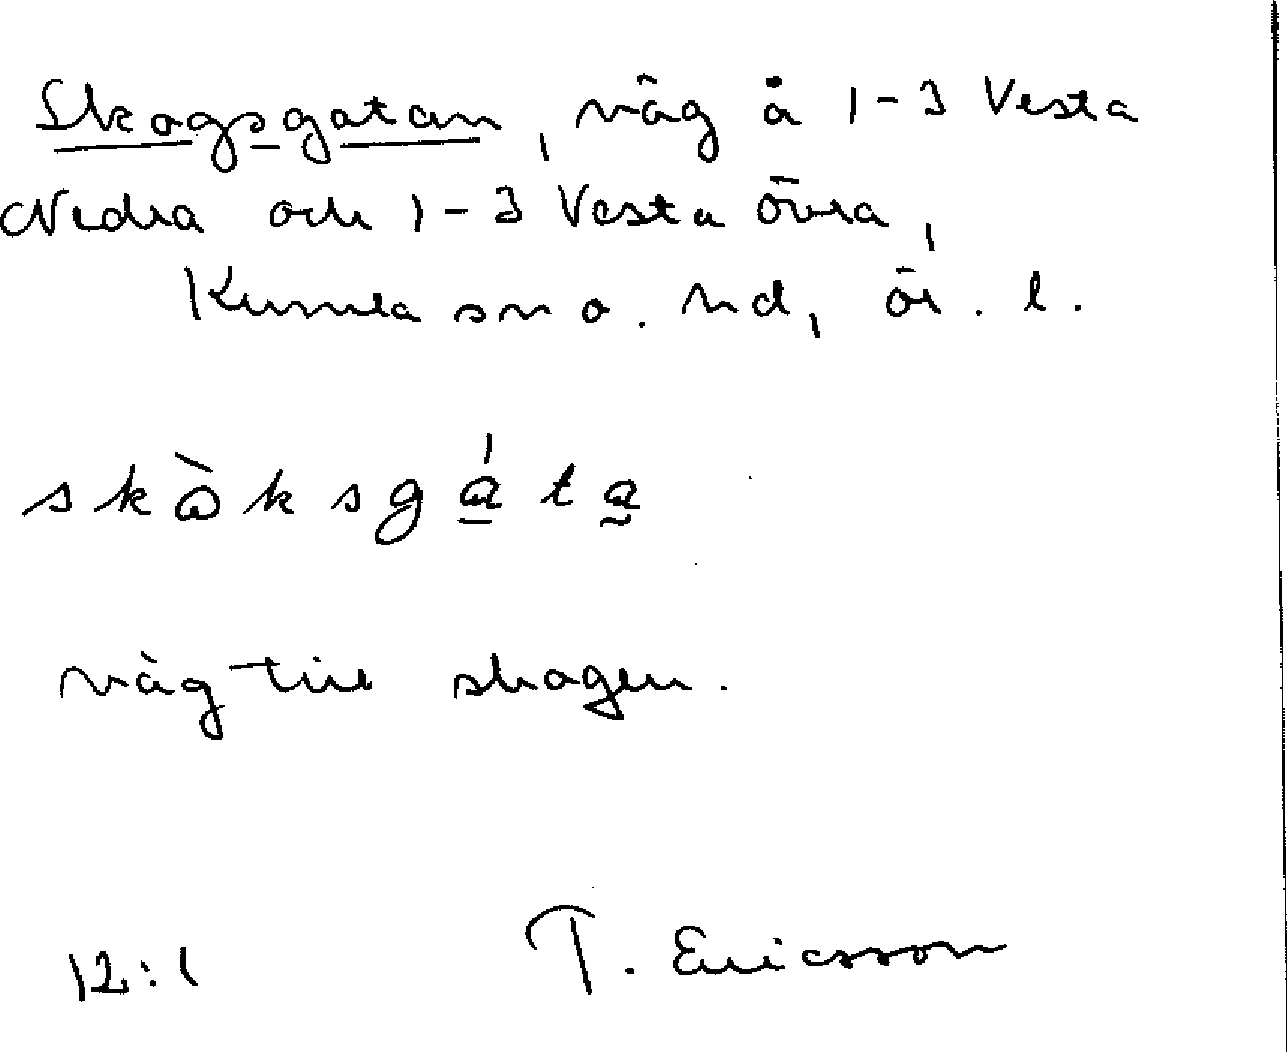 Skogsgatan, väg å 1-3 Vesta
Nedra och 1-3 Vesta Övra,
Kumla sn o. hd, Ör. l.
skòksgáta
väg till skogen.
12:1
T. Ericsson